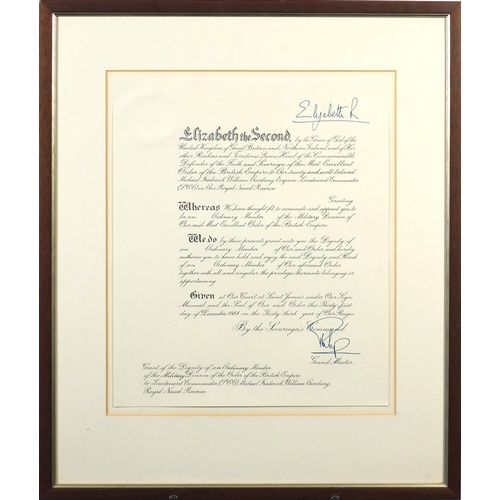 Elizabeth R
Elizabeth the Second, by the Grace of God of the
United Kingdom of Great Britain and Northern Ireland and of Her
other Realms and Territories Queen, Head of the Commonwealth
Defender of the Faith and Sovereign of the Most Excellent
Order of the British Empire to Our trusty and well beloved
Michael Frederick William Esquire Lieutenant Commander
in Our Royal Naval Reserve
Greeting
Whereas We have thought fit to nominate and appoint you to
be an Ordinary Member of the Military Division of
Our said Most Excellent Order of the British Empire
We do by these presents grant unto you the Dignity of
an Ordinary Member of Our said Order and hereby
authorise you to have hold and enjoy the said Dignity and Rank
of an Ordinary Member of Our aforesaid Order
together with all and singular the privileges thereunto belonging or
appertaining
Given at Our Court at Saint James's under Our Sign
Manual and the Seal of Our said Order this Thirty-first
day of December 1984 in the Thirty-third year of Our Reign
By the Sovereign's Command
Grand Master
Grant of the Dignity of an Ordinary Member
of the Military Division of the Order of the British Empire
to Lieutenant Commander Michael Frederick William
Royal Naval Reserve